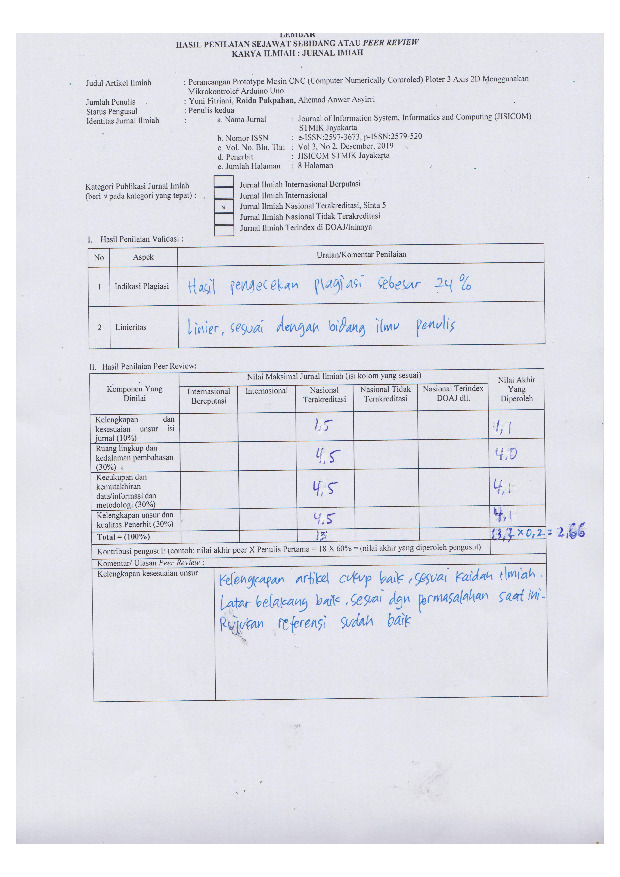 LEMBAR
HASIL PENILAIAN SEJAWAT SEBIDANG ATAU PEER REVIEW
KARYA ILMIAH : JURNAL IMIAH
Judul Artikel Ilmiah : Perancangan Prototype Mesin CNC (Computer Numerically Controled) Ploter 3 Axis 2D Menggunakan
Mikrokontroler Arduino Uno
Jumlah Penulis : Yuni Fitriani, Roida Pakpahan, Ahemad Anwar Asyiri
Status Pengusul : Penulis kedua
Identitas Jurnal Ilmiah : a. Nama Jurnal : Journal of Information System, Informatics and Computing (JISICOM)
STMIK Jayakarta
b. Nomor ISSN : e-ISSN:2597-3673, p-ISSN:2579-520
c. Vol. No. Bln. Thn : Vol 3, No 2, Desember, 2019
d. Penerbit : JISICOM STMIK Jayakarta
e. Jumlah Halaman : 8 Halaman
Kategori Publikasi Jurnal Imiah
(beri v pada kategori yang tepat) :
Jurnal Ilmiah Internasional Bereputasi
Jurnal Ilmiah Internasional
v Jurnal Ilmiah Nasional Terakreditasi, Sinta 5
Jurnal Ilmiah Nasional Tidak Terakreditasi
Jurnal Ilmiah Terindex di DOAJ/lainnya
I. Hasil Penilaian Validasi :
No Aspek Uraian/Komentar Penilaian
1 Indikasi Plagiasi Hasil pengecekan plagiasi sebesar 24%
2 Linieritas Linier, sesuai dengan bidang ilmu penulis
II. Hasil Penilaian Peer Review:
Komponen Yang Dinilai
Nilai Maksimal Jurnal Ilmiah (isi kolom yang sesuai)
Nilai Akhir Yang Diperoleh
Internasional Bereputasi Internasional Nasional Terakreditasi Nasional Tidak Terakreditasi Nasional Terindex DOAJ dll.
Kelengkapan dan
kesesuaian unsur isi
jurnal (10%) 1,5 1,1
Ruang lingkup dan
kedalaman pembahasan
(30%) 4,5 4,0
Kecukupan dan
kemutakhiran
data/informasi dan
metodologi (30%) 4,5 4,1
Kelengkapan unsur dan
kualitas Penerbit (30%) 4,5 4,1
Total = (100%) 15 13,3 X 0,2 = 2,66
Kontribusi pengusul: (contoh: nilai akhir peer X Penulis Pertama = 18 X 60% = (nilai akhir yang diperoleh pengusul)
Komentar/ Ulasan Peer Review :
Kelengkapan kesesuaian unsur Kelengkapan artikel cukup baik, sesuai kaidah ilmiah.
Latar belakang baik, sesuai dgn permasalahan saat ini.
Rujukan referensi sudah baik